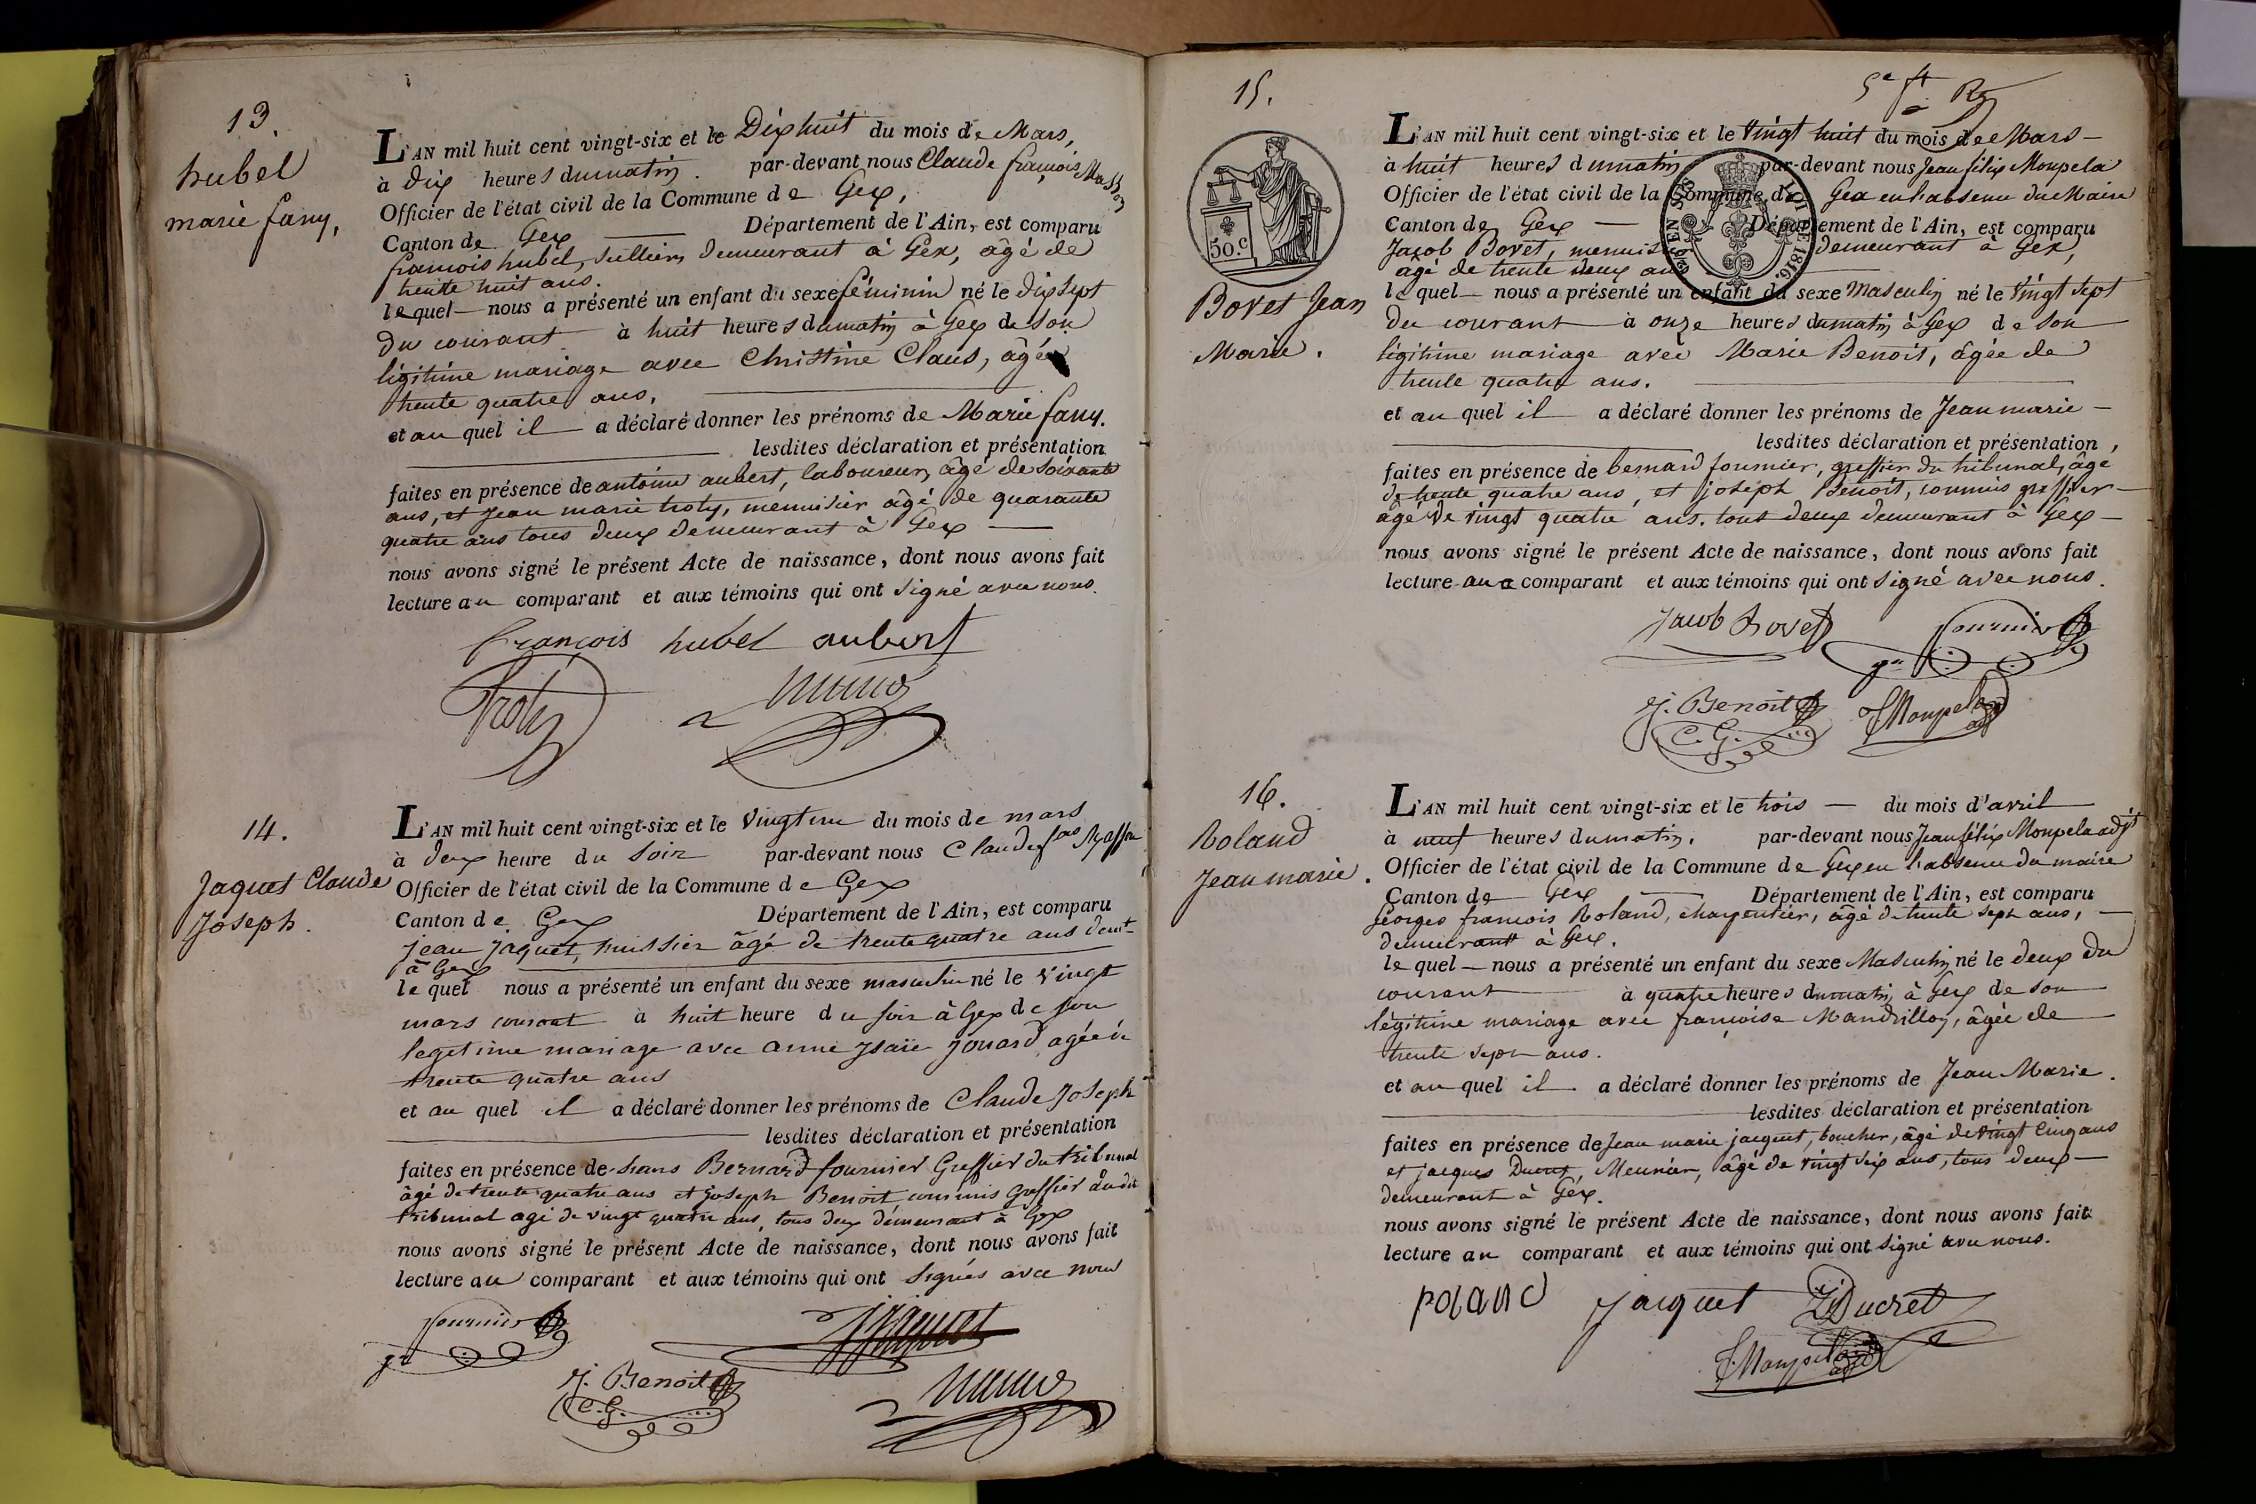 13.
hubel
marie fany,
L'AN mil huit cent vingt-six et le Dix huit du mois de Mars,
à dix heures du matin. par-devant nous Claude françois
Officier de l'état civil de la Commune de Gex,
Canton de Gex Département de l'Ain, est comparu
francois hubel, sellier, demeurant à Gex, âgé de
trente huit ans.
lequel nous a présenté un enfant du sexe féminin né le dix sept
du courant à huit heures du matin à Gex de son
légitime mariage avec Christine Claus, âgée
trente quatre ans.
et au quel il a déclaré donner les prénoms de Marie fany.
lesdites déclaration et présentation
faites en présence de antoine aubert, laboureur, âgé de soixante
ans, et Jean marie troty, menuisier âgé de quarante
quatre ans tous deux demeurant à Gex
nous avons signé le présent Acte de naissance, dont nous avons fait
lecture au comparant et aux témoins qui ont signé avec nous.
françois hubel aubert
Troty
14.
Jaquet Claude
Joseph.
L'AN mil huit cent vingt-six et le vingt un du mois de mars
à deux heure du soir par-devant nous Claude fois
Officier de l'état civil de la Commune de Gex
Canton de Gex Département de l'Ain, est comparu
jean jaquet, huissier âgé de trente quatre ans demt
à Gex
le quel nous a présenté un enfant du sexe masculin né le vingt
mars courant à huit heure du soir à Gex de son
legitime mariage avec anne jsaïe jouard agée de
trente quatre ans
et au quel il a déclaré donner les prénoms de Claude Joseph
lesdites déclaration et présentation
faites en présence de Bernard fournier Greffier du tribunal
âgé de trente quatre ans et joseph Benoit commis Greffier audit
tribunal agé de vingt quatre ans, tous deux démeurant à Gex
nous avons signé le présent Acte de naissance, dont nous avons fait
lecture au comparant et aux témoins qui ont signés avec nous
fournier
gr
Jaquet
J. Benoit
C.G.
15.
5e ft
L'AN mil huit cent vingt-six et le vingt huit du mois de Mars
à huit heures du matin par-devant nous Jean félix Moupela
Officier de l'état civil de la Commune de Gex en l'absence du Maire
Canton de Gex Département de l'Ain, est comparu
Jacob Bovet, demeurant à Gex,
âgé de trente deux ans
50.c
LOI DE 1816.
Bovet Jean
Marie.
le quel nous a présenté un enfant du sexe Masculin né le vingt sept
du courant à onze heures du matin à Gex de son
légitime mariage avec Marie Benoit, âgée de
trente quatre ans.
et au quel il a déclaré donner les prénoms de Jean marie
lesdites déclaration et présentation,
faites en présence de bernard fournier, greffier du tribunal, âgé
de trente quatre ans, et joseph Benoit, commis greffier
âgé de vingt quatre ans. tous deux demeurant à Gex
nous avons signé le présent Acte de naissance, dont nous avons fait
lecture au comparant et aux témoins qui ont signé avec nous.
Jacob Bovet fournier
gr
J. Benoit Moupela
C.G.
16.
Roland
Jean marie.
L'AN mil huit cent vingt-six et le trois du mois d'avril
à neuf heures du matin. par-devant nous Jean félix Moupela adjt
Officier de l'état civil de la Commune de Gex en l'absence du maire
Canton de Gex Département de l'Ain, est comparu
Georges francois Roland, charpentier, âgé de trente sept ans,
demeurant à Gex.
le quel nous a présenté un enfant du sexe Masculin né le deux du
courant à quatre heures du matin à Gex de son
légitime mariage avec françoise Mandrillon, âgée de
trente sept ans.
et au quel il a déclaré donner les prénoms de Jean Marie.
lesdites déclaration et présentation
faites en présence de Jean marie jacquet, boucher, âgé de vingt cinq ans
et jacques Ducret, Meunier, âgé de vingt six ans, tous deux
demeurant à Gex.
nous avons signé le présent Acte de naissance, dont nous avons fait
lecture au comparant et aux témoins qui ont signé avec nous.
Roland Jacquet Ducret
Moupela